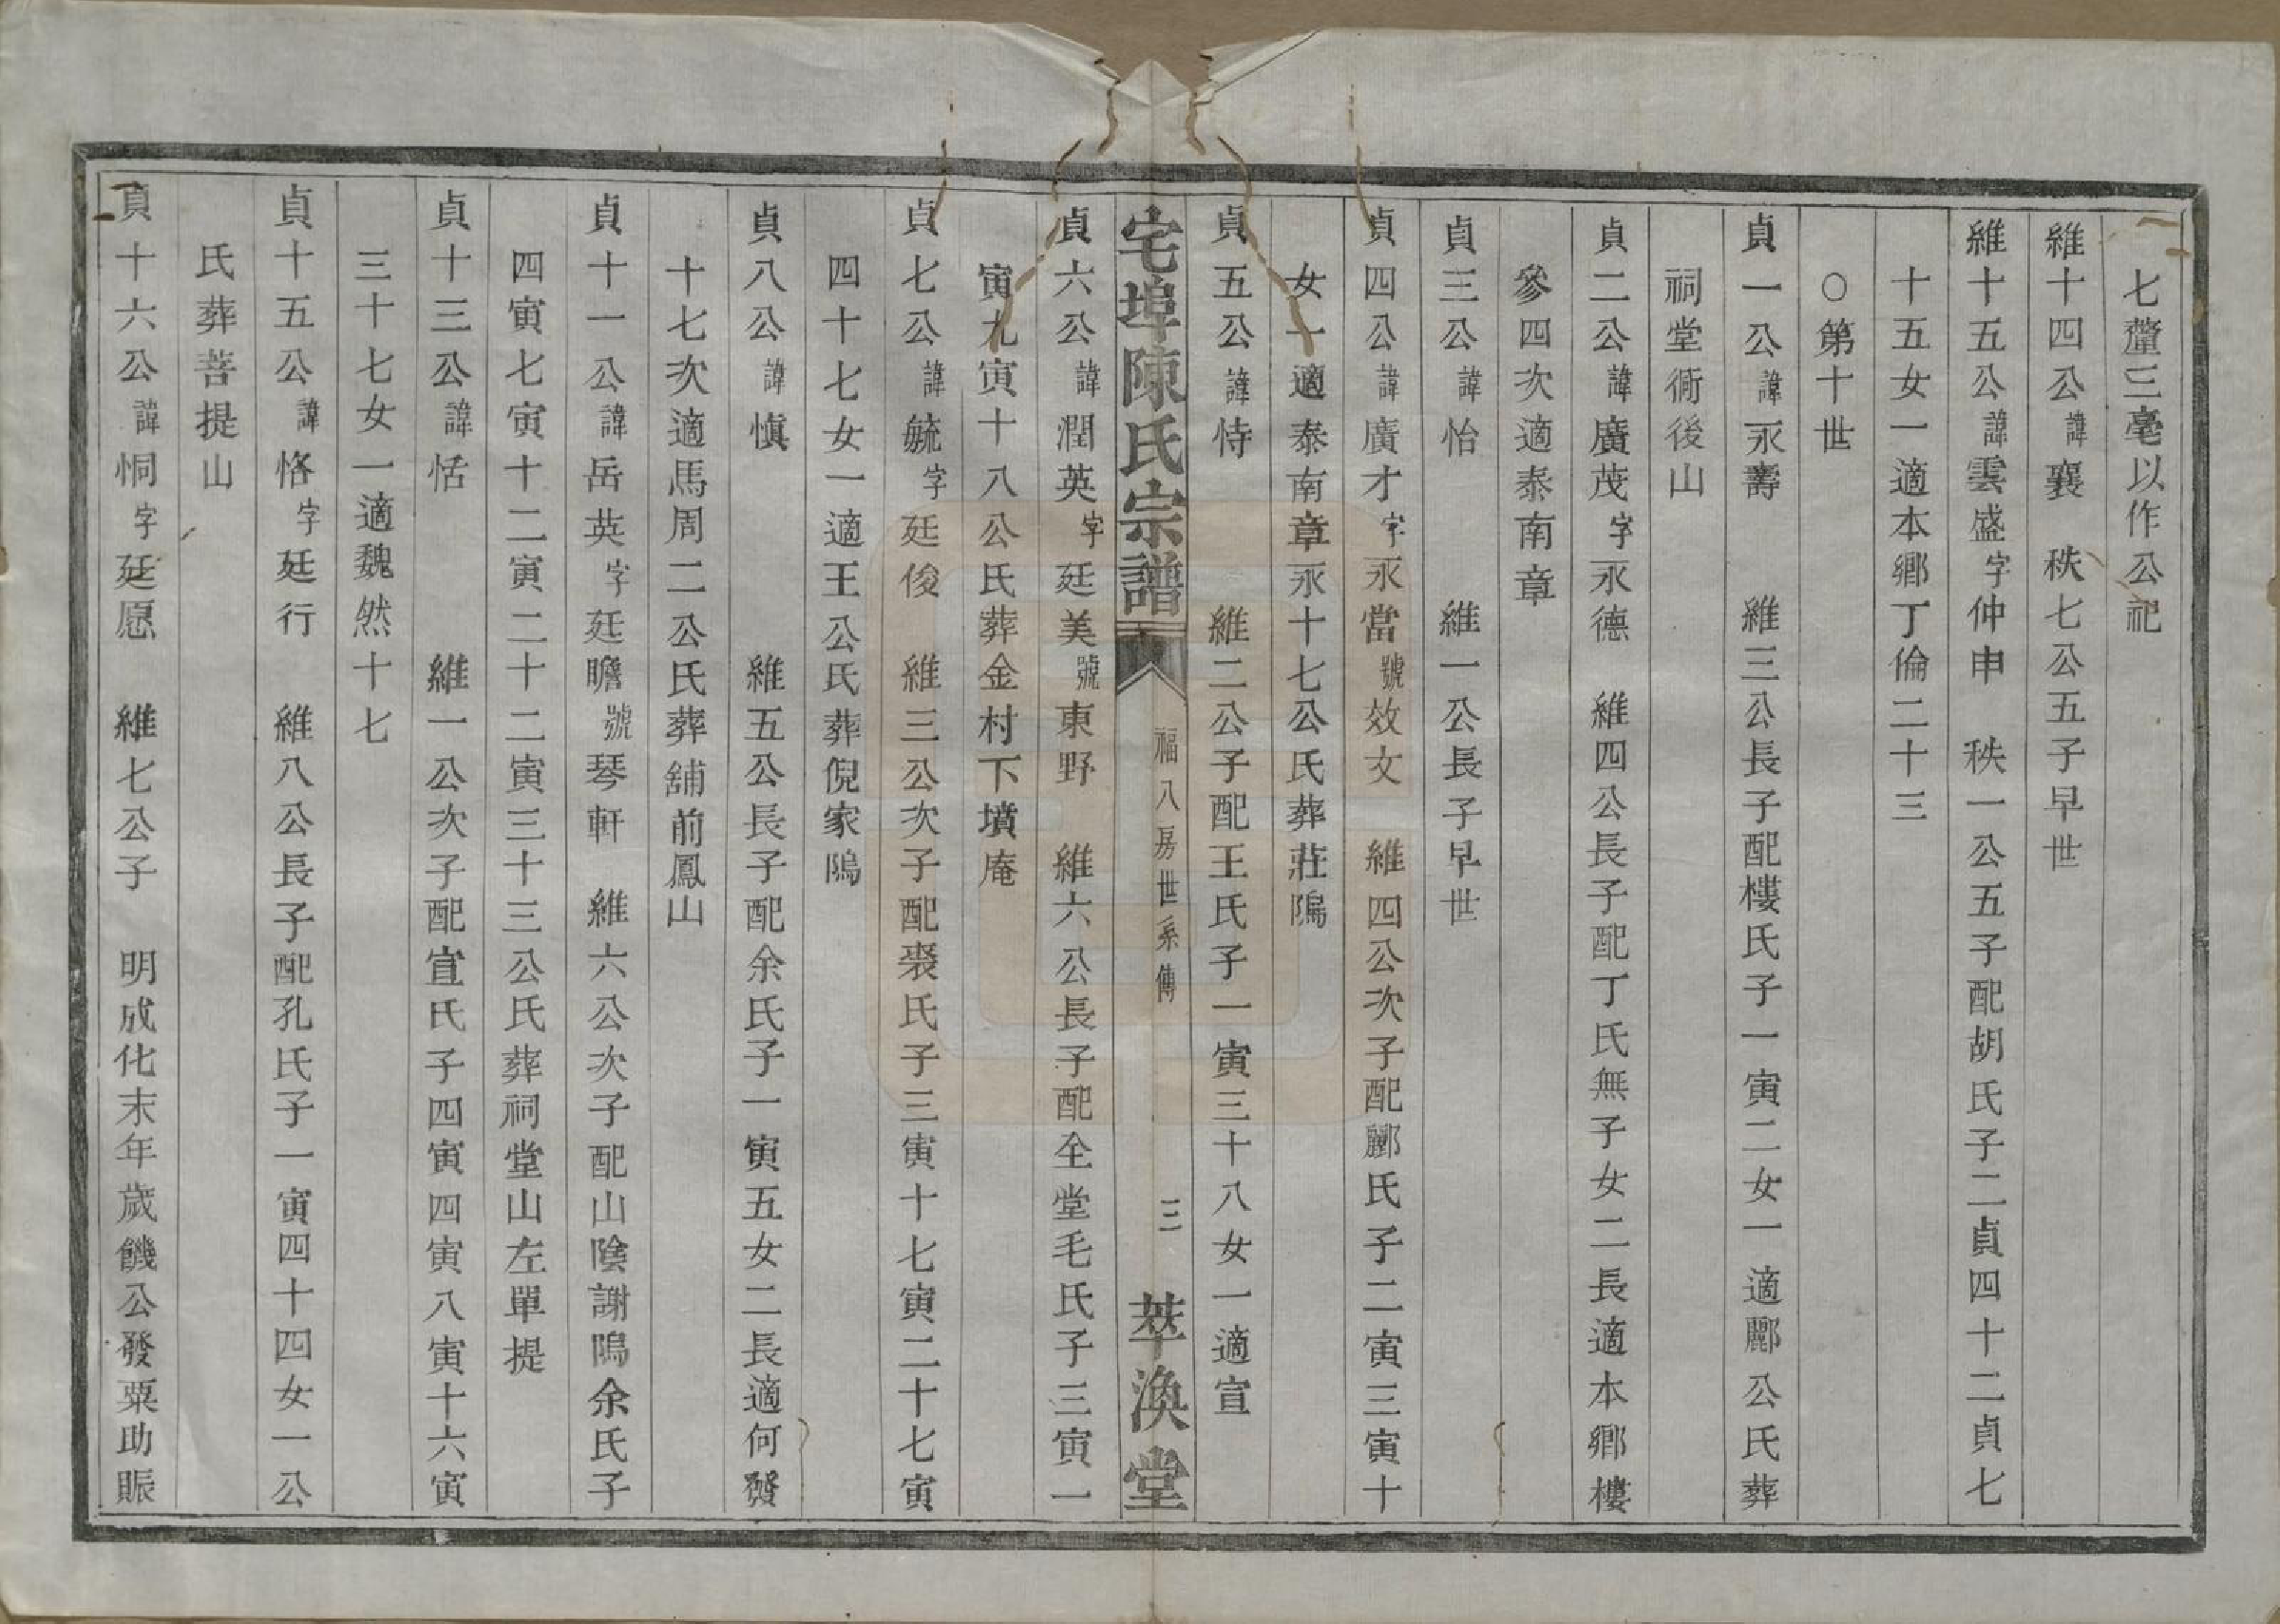 七釐三毫以作公祀
維十四公諱襄 秩七公五子早世
維十五公諱雲盛字仲申 秩一公五子配胡氏子二貞四十二貞七
十五女一適本鄉丁倫二十三
○第十世
貞一公諱永壽 維三公長子配樓氏子一寅二女一適酈公氏葬
祠堂衕後山
貞二公諱廣茂字永德 維四公長子配丁氏無子女二長適本鄉樓
參四次適泰南章
貞三公諱怡 維一公長子早世
貞四公諱廣才字永當號效文 維四公次子配酈氏子二寅三寅十
女一適泰南章永十七公氏葬莊隖
貞五公諱恃 維二公子配王氏子一寅三十八女一適宣
宅埠陳氏宗譜 福八房世系傳 三 萃渙堂
貞六公諱潤英字廷美號東野 維六公長子配全堂毛氏子三寅一
寅九寅十八公氏葬金村下墳庵
貞七公諱毓字廷俊 維三公次子配裘氏子三寅十七寅二十七寅
四十七女一適王公氏葬倪家隖
貞八公諱慎 維五公長子配余氏子一寅五女二長適何賢
十七次適馬周二公氏葬舖前鳳山
貞十一公諱岳英字廷瞻號琴軒 維六公次子配山陰謝隖余氏子
四寅七寅十二寅二十二寅三十三公氏葬祠堂山左單提
貞十三公諱恬 維一公次子配宣氏子四寅四寅八寅十六寅
三十七女一適魏然十七
貞十五公諱恪字廷行 維八公長子配孔氏子一寅四十四女一公
氏葬菩提山
貞十六公諱恫字廷愿 維七公子 明成化末年歲饑公發粟助賑